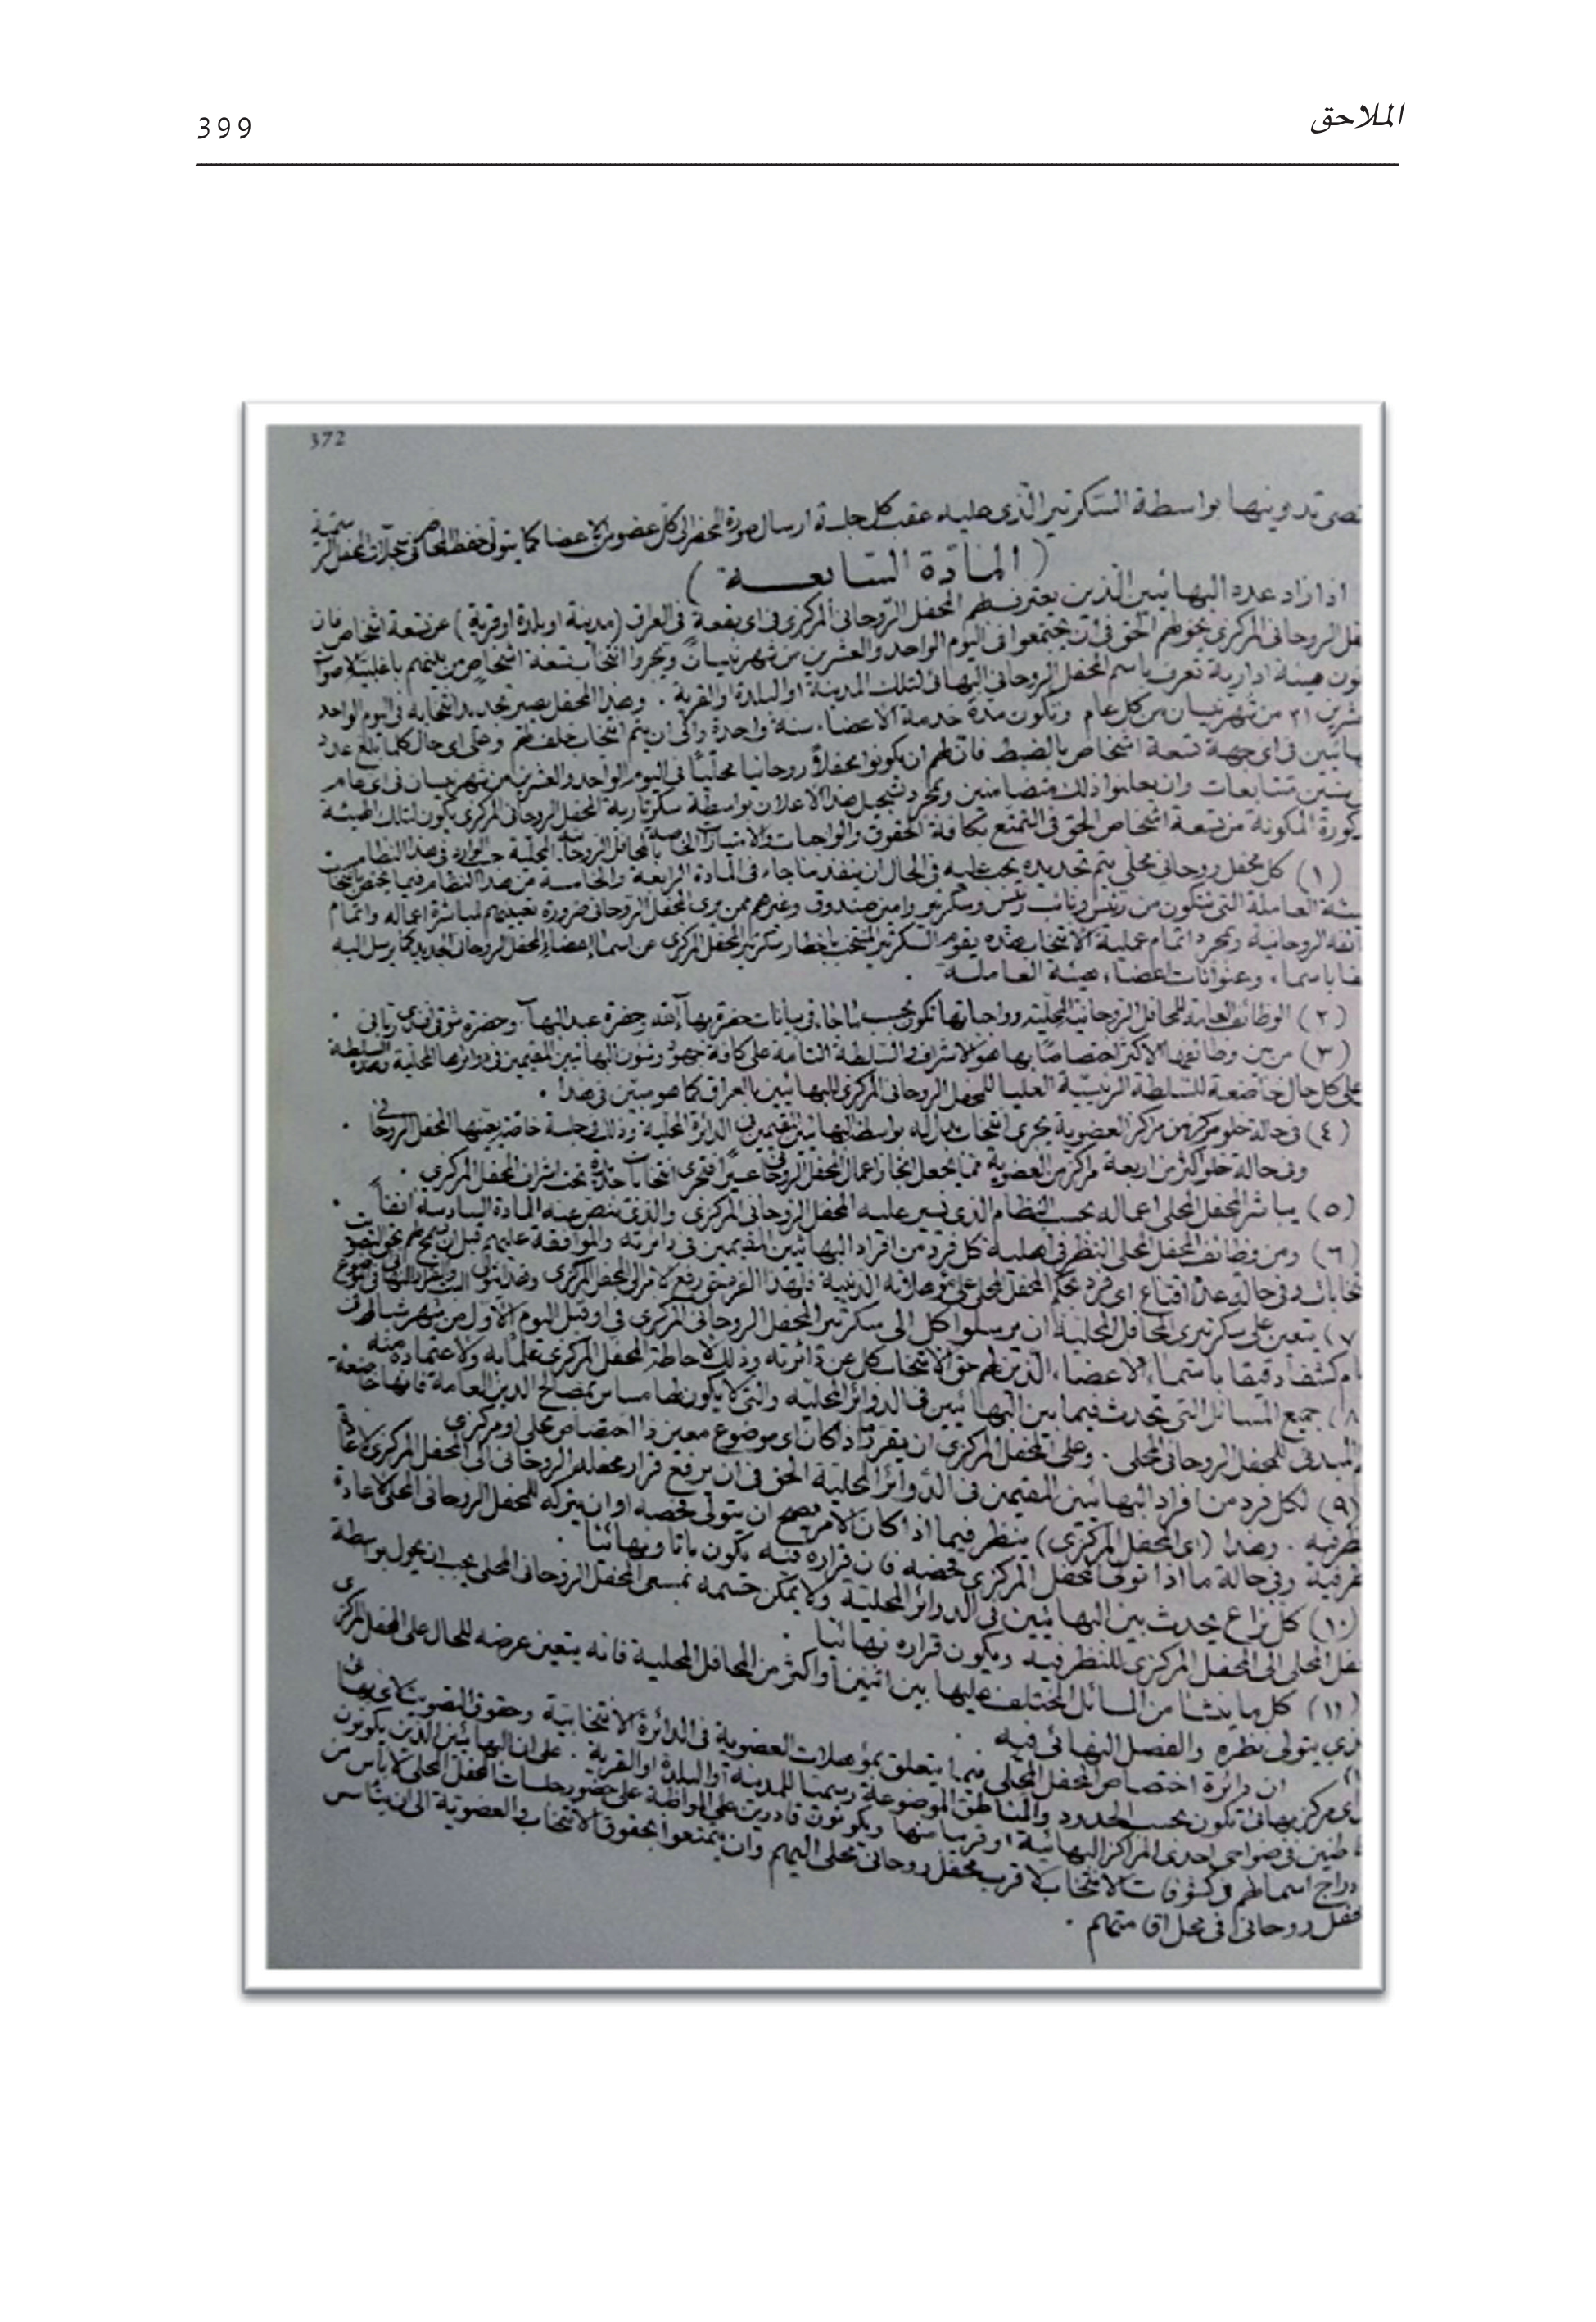 الملاحق
399
372
تدوينها بواسطة السكرتير الذى عليه عقب كل جلسة ارسال صورة المحضر الى كل عضو من الاعضا كما يتولى حفظ المحاضر
( المادة السابعة )
اذا زاد عدد البهائيين الذين يعترف لهم المحفل الروحانى المركزى فى اى بقعة فى العراق (مدينة او بلدة او قرية) عن تسعة اشخاص فان
الروحانى المركزى يخولهم الحق فى أن يجتمعوا فى اليوم الواحد والعشرين من شهر نيسان ويجروا انتخاب تسعة اشخاص من بينهم باغلبية الاصوات
هيئة ادارية تعرف باسم المحفل الروحانى البهائى لتلك المدينة او البلدة او القرية . وهذا المحفل يصير تجديد انتخابه فى اليوم الواحد
٢١ من شهر نيسان من كل عام وتكون مدة خدمة الاعضاء سنة واحدة والى ان يتم انتخاب خلف لهم وعلى اى حال كلما بلغ عدد
فى اى جهة تسعة اشخاص بالضبط فان لهم ان يكونوا محفلاً روحانيا محليًا فى اليوم الواحد والعشرين من شهر نيسان فى اى عام
وان يعلنوا ذلك متضامنين وبمجرد تسجيل هذا الاعلان بواسطة سكرتارية المحفل الروحانى المركزى يكون لتلك الهيئة
المكونة من تسعة اشخاص الحق فى التمتع بكافة الحقوق والواجبات والامتيازات الخاصة بالمحافل الروحانية المحلية حسب الوارد فى هذا النظام
(١) كل محفل روحانى محلى يتم تحديده يجب عليه فى الحال ان ينفذ ما جاء فى المادة الرابعة والخامسة من هذا النظام فيما يختص بانتخاب
العاملة التى تتكون من رئيس ونائب رئيس وسكرتير وامين صندوق وغيرهم ممن يرى المحفل الروحانى ضرورة تعيينهم لمباشرة اعماله واتمام
الروحانية وبمجرد اتمام عملية الانتخاب هذه يقوم السكرتير المنتخب باخطار سكرتير المحفل المركزى عن اسماء اعضاء المحفل الروحانى الجديد كما يرسل اليه
باسماء وعنوانات اعضاء هيئة العاملة .
(٢) الوظائف العامة للمحافل الروحانية المحلية وواجباتها تكون بحسب ما جاء فى بيانات حضرة بهاء الله وحضرة عبد البهاء وحضرة شوقى افندى ربانى .
(٣) من بين وظائفها الاكثر اختصاصًا بها هو الاشراف والسلطة التامة على كافة جهود وشئون البهائيين المقيمين فى دوائرها المحلية وهذه السلطة
على كل حال خاضعة للسلطة الرئيسية العليا للمحفل الروحانى المركزى للبهائيين بالعراق كما هو مبين فى هذا .
(٤) فى حالة خلو مركز من مراكز العضوية يجرى انتخاب بدله بواسطة البهائيين المقيمين فى الدائرة المحلية وذلك فى جلسة خاصة يعينها المحفل الروحانى .
وفى حالة خلو اكثر من اربعة مراكز من العضوية مما يجعل انجاز اعمال المحفل الروحانى عسيرًا فتجرى انتخابات جديدة تحت اشراف المحفل المركزى .
(٥) يباشر المحفل المحلى اعماله بحسب النظام الذى تسير عليه المحفل الروحانى المركزى والذى ينص عنه المادة السادسة آنفاً .
(٦) ومن وظائف المحفل المحلى النظر فى اهلية كل فرد من افراد البهائيين المقيمين فى دائرته والموافقة عليهم قبل ان
وفى حالة عدم اقناع اى فرد بحكم المحفل المحلى على مؤهلاته الدينية فلهذا الفرد حق رفع الامر الى المحفل المركزى
٧) يتعين على سكرتيرى المحافل المحلية ان يرسلوا كل الى سكرتير المحفل الروحانى المركزى فى او قبل اليوم الاول من شهر شباط
كشفاً دقيقا باسماء الاعضاء الذين لهم حق الانتخاب كل عن دائرته وذلك لاحاطة المحفل المركزى علمًا به ولاعتماده منه .
٨) جميع المسائل التى تحدث فيما بين البهائيين فى الدوائر المحلية والتى لا يكون لها مساس بمصالح الدين العامة فانها خاضعة
للمحفل الروحانى المحلى . وعلى المحفل المركزى ان يقرر ما اذا كان اى موضوع معين ذا اختصاص محلى او مركزى
(٩) لكل فرد من افراد البهائيين المقيمين فى الدوائر المحلية الحق فى ان يرفع قرار محفله الروحانى الى المحفل المركزى
وهذا (اى المحفل المركزى) ينظر فيما اذا كان الامر يصح ان يتولى فحصه او ان يتركه للمحفل الروحانى المحلى لاعادة
وفى حالة ما اذا تولى المحفل المركزى فحصه فان قراره فيه يكون باتا ونهائيا .
(١٠) كل نزاع يحدث بين البهائيين فى الدوائر المحلية ولا يمكن حسمه بمسعى المحفل الروحانى المحلى يجب ان يحول بواسطة
المحلى الى المحفل المركزى للنظر فيه ويكون قراره نهائيا .
(١١) كل ما ينشأ من المسائل المختلف عليها بين اثنين او اكثر من المحافل المحلية فانه يتعين عرضه للحال على المحفل المركزى
يتولى نظره والفصل النهائى فيه .
ان دائرة اختصاص المحفل المحلى فيما يتعلق بمؤهلات العضوية فى الدائرة الانتخابية وحقوق التصويت
مركز بهائى تكون بحسب الحدود والمناطق الموضوعة رسميا للمدينة او البلدة او القرية . على ان البهائيين الذين يكونون
فى ضواحى احدى المراكز البهائية او قريبا منها ويكونون قادرين على المواظبة على حضور جلسات المحفل المحلى لا بأس من
ادراج اسمائهم فى كشوفات الانتخاب لاقرب محفل روحانى محلى اليهم وان يتمتعوا بحقوق الانتخاب والعضوية الى ان يتأسس
محفل روحانى فى محل اقامتهم .